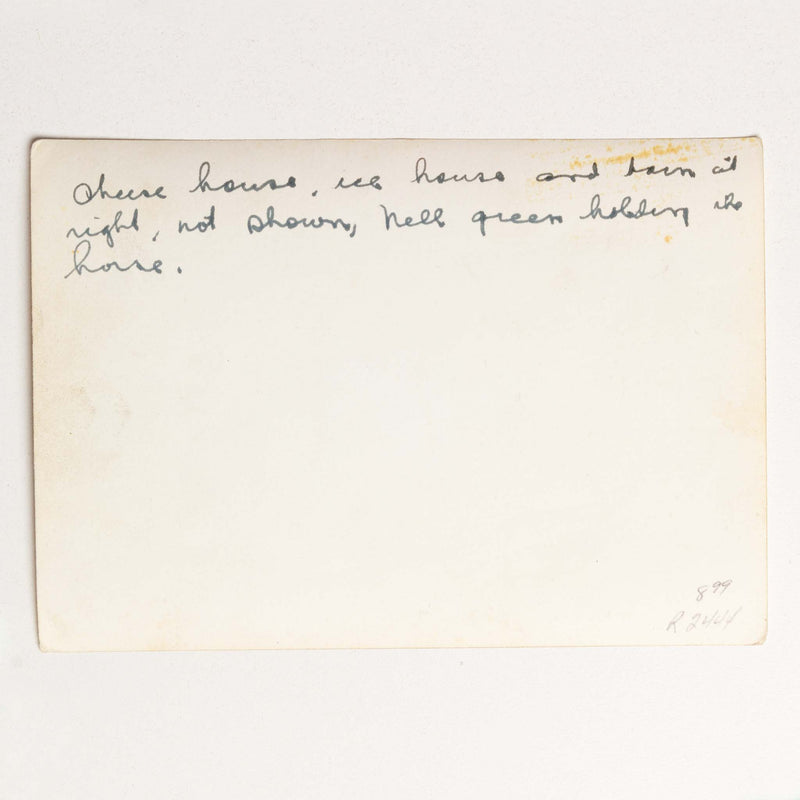 cheese house, ice house and barn at
right, not shown, Nell green holding the
horse.
8 99
R 2444